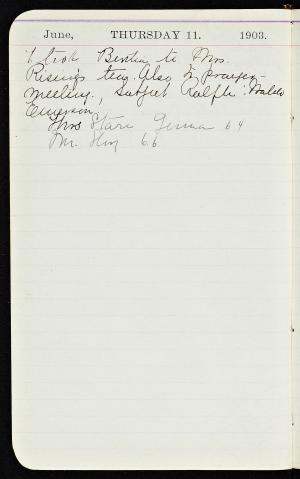 June, THURSDAY 11. 1903.
I took Bertha to Mrs.
Risings tea. Also to prayer-
meeting. Subject Ralph Waldo
Emerson.
Mrs Starr German 64
Mr. 66